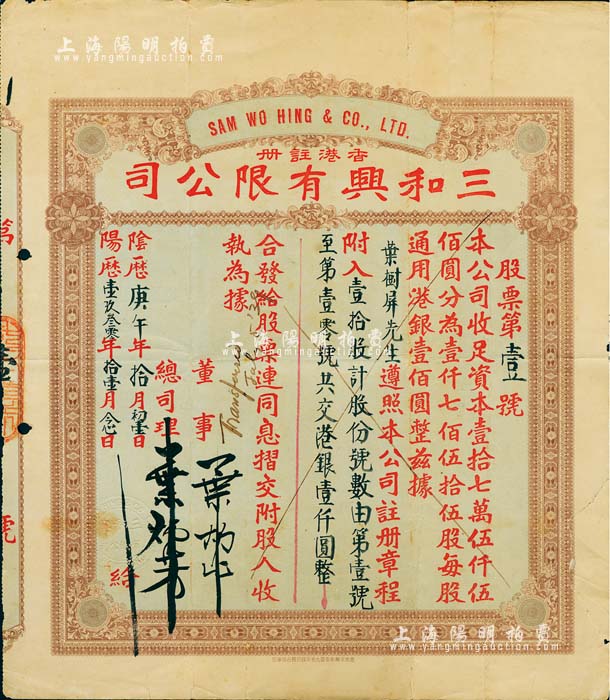 上海陽明拍賣
www.yangmingauction.com
SAM WO HING & CO., LTD.
香港註册
三和興有限公司
股票第壹號
本公司收足資本壹拾七萬伍仟伍
佰圓分為壹仟七佰伍拾伍股每股
通用港銀壹佰圓整茲據
葉樹屏先生遵照本公司註册章程
附入壹拾股計股份號數由第壹號
至第壹零號共交港銀壹仟圓整
Transferred
合發給股票連同息摺交附股人收
執為據
董事
總司理
陰歷庚午年拾月初壹日
陽歷壹玖叁零年拾壹月念日
給
第壹號
上海陽明拍賣
www.yangmingauction.com
上海陽明拍賣
www.yangmingauction.com